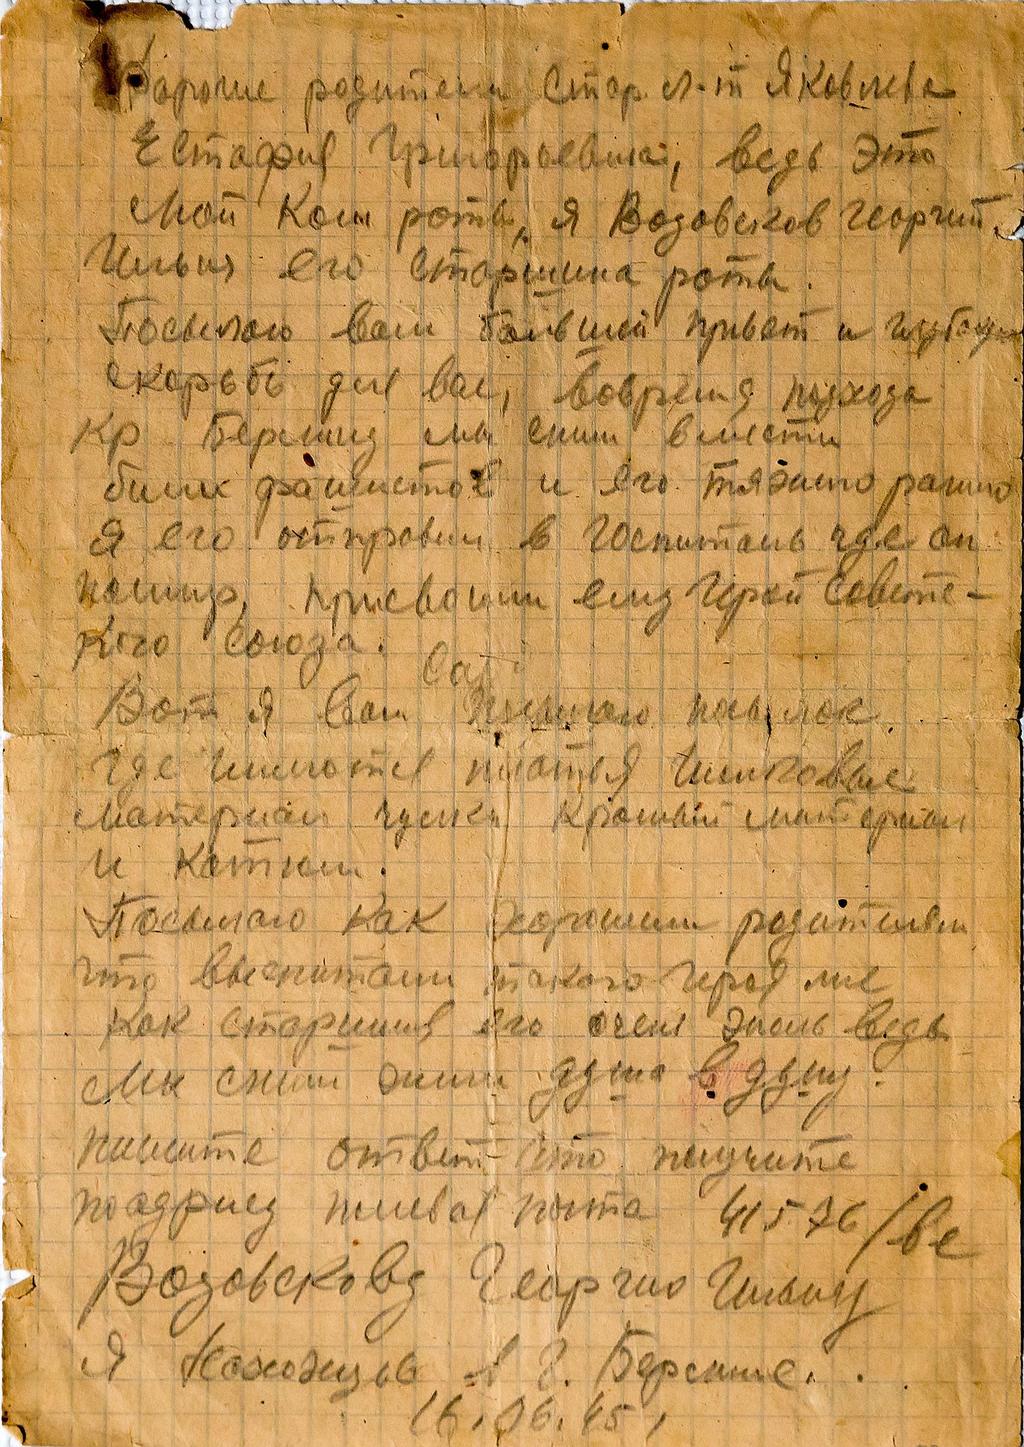 Дорогие родители Стар. л-т Яковлева
Естафия Григорьевича, ведь это
мой Ком роты, я Водовсков Георгий
Ильич его старшина роты.
Посылаю вам большой привет и
скорьбь для вас, вовремя подхода
к р Берлину мы сним вместе
били фашистов и его тяжело ранило
я его отправил в госпиталь где он
помир, присвоили ему Герой Советс-
кого Союза.
Вот я вам посылаю посылок
где имеются платья шелковые
материал чулки красный материал
и костюм.
Посылаю как хорошим родителям
что воспитали такого Героя мне
как старшине его очень жаль ведь
мы сним жили душа в душу.
пишите ответ что получите
поадрису полевая почта 41576/ве
Водовскову Георгию Ильичу
я нахожусь в г. Берлине.
16.06.45,